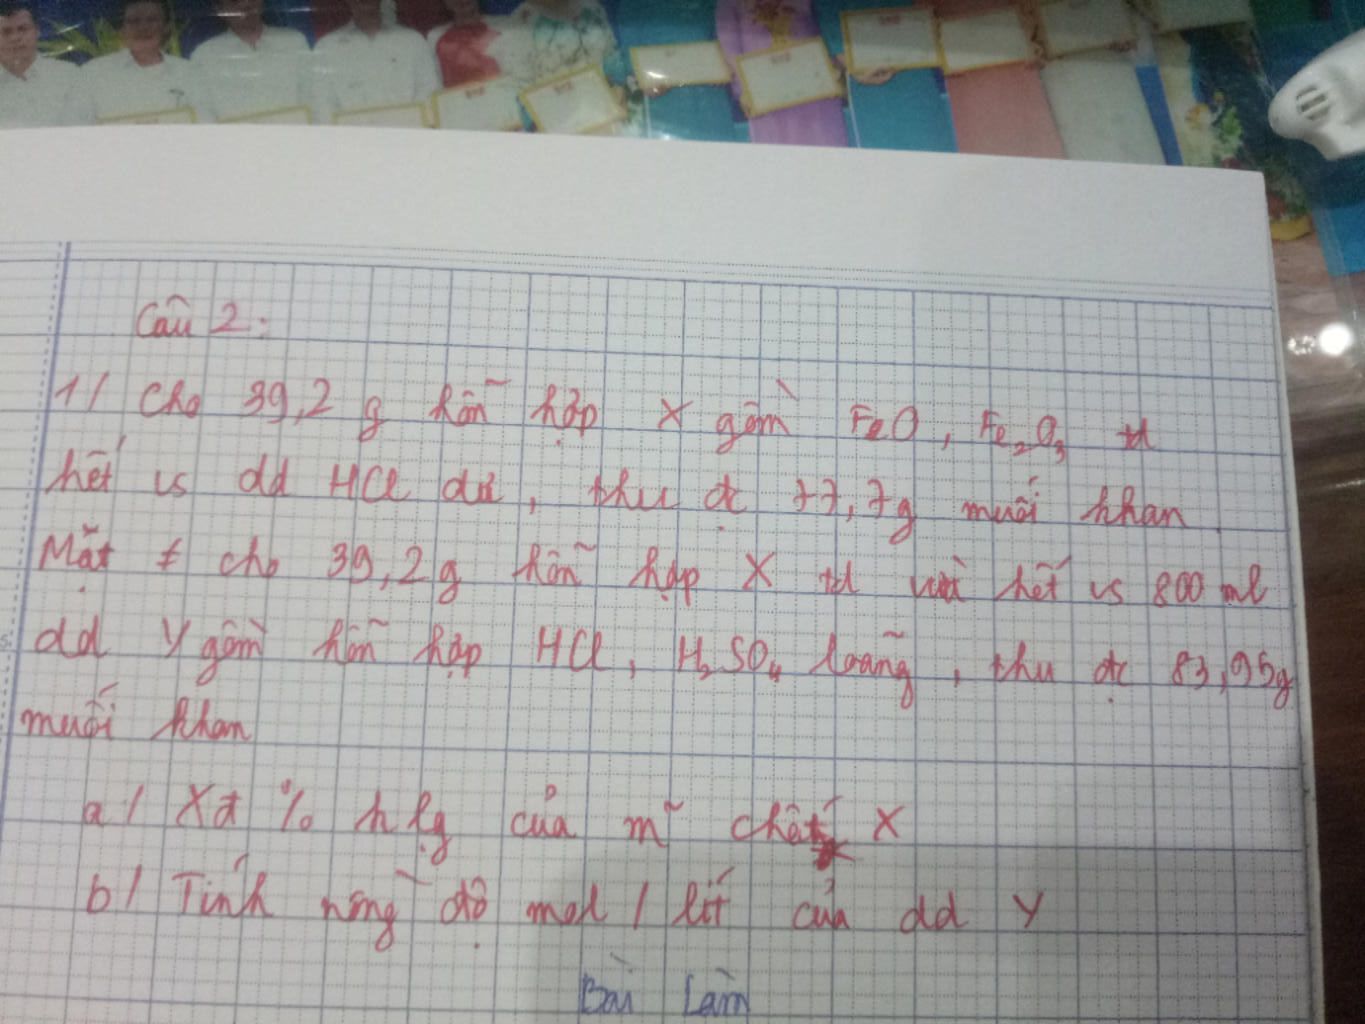 Câu 2:
1/ Cho 39,2 g hỗn hợp X gồm FeO, Fe₂O₃ td
hết vs dd HCl dư, thu đc 77,7g muối khan.
Mặt ≠ cho 39,2 g hỗn hợp X td vừa hết vs 800 ml
dd Y gồm hỗn hợp HCl, H₂SO₄ loãng, thu đc 83,95g
muối khan
a/ Xđ % h lg của m~ chất X
b/ Tính nồng độ mol / lít của dd Y
Bài Làm